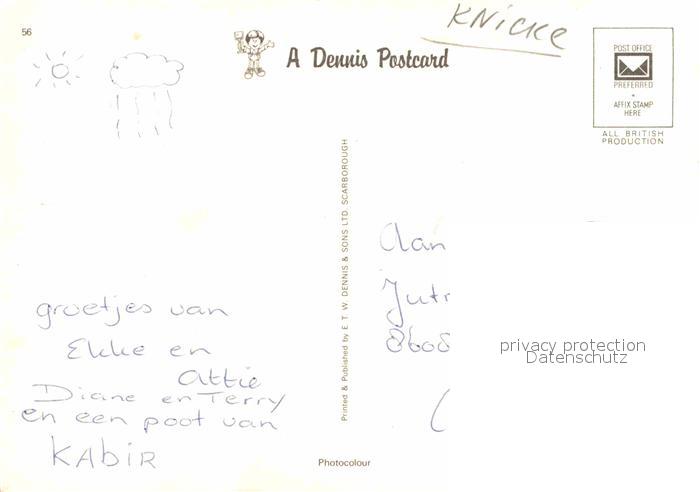 56
KNicKe
A Dennis Postcard
POST OFFICE
PREFERRED
AFFIX STAMP
HERE
ALL BRITISH
PRODUCTION
Printed & Published by E. T. W. DENNIS & SONS LTD. SCARBOROUGH
groetjes van
Ekke en
Attie
Diane en Terry
en een poot van
KABIR
Aan
privacy protection
Datenschutz
Photocolour